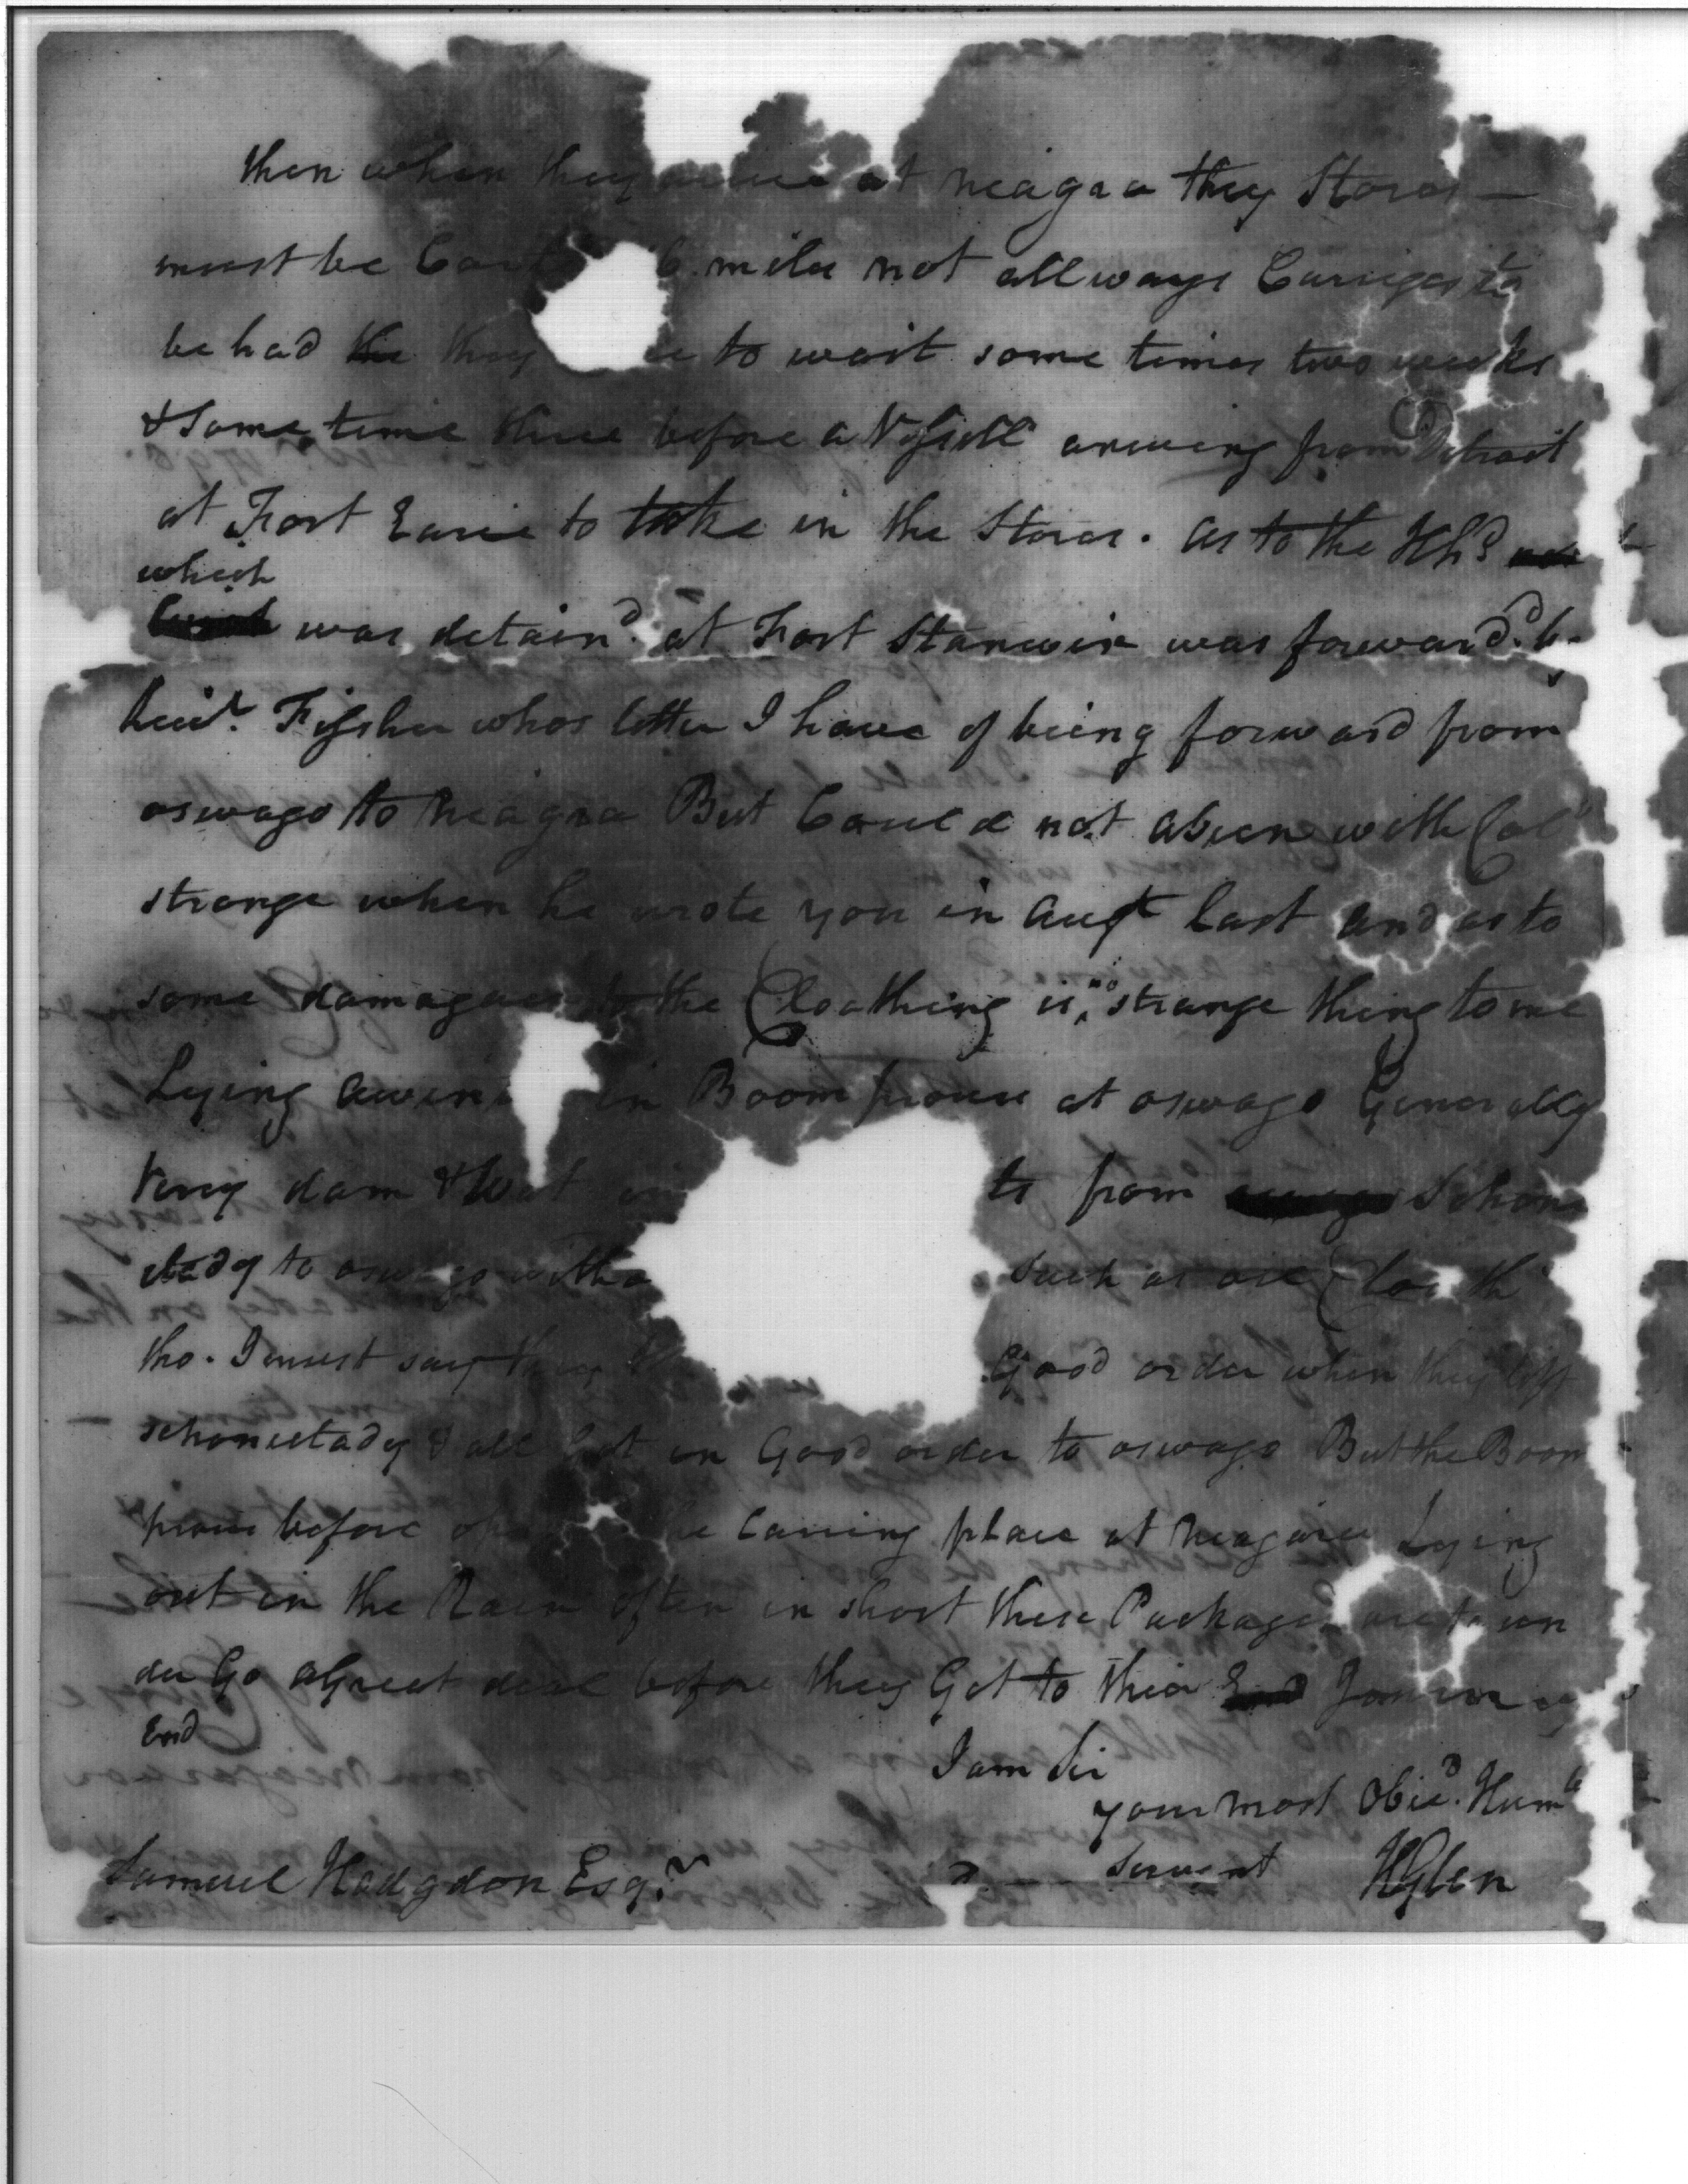 then when they arive at neagra they Stores —
must be Cart 6 mile not allways Carriges to
be had the they to wait some times two weeks
& Some time three before a Vessell arriving from Detroit
at Fort Earie to take in the Stores. as to the Hhds
which
was detaind. at Fort Stanwix was forward.d by
Leiut. Fissher whos letter I have of being forward from
oswago to neagra But Could not abeen with Col
strange when he wrote you in Augt last and as to
some damagues to the Cloathing is no strange thing to me
Lying in Boom prouw at oswago Generally
Very dam & Wet ts from Schon
etady to oswago witho such as are Cloath
tho. I must say they Good order when they left
schonectady & all Got in Good order to oswago But the Boom
prouw before the Carring place at neagara Lying
out in the Rain often in short these Packages are to un
der Go a Great deal before they Get to thier End Journey
End
I am Sir
your most Obed. Humbe
servant HGlen
Samuel Hodgdon Esqr.